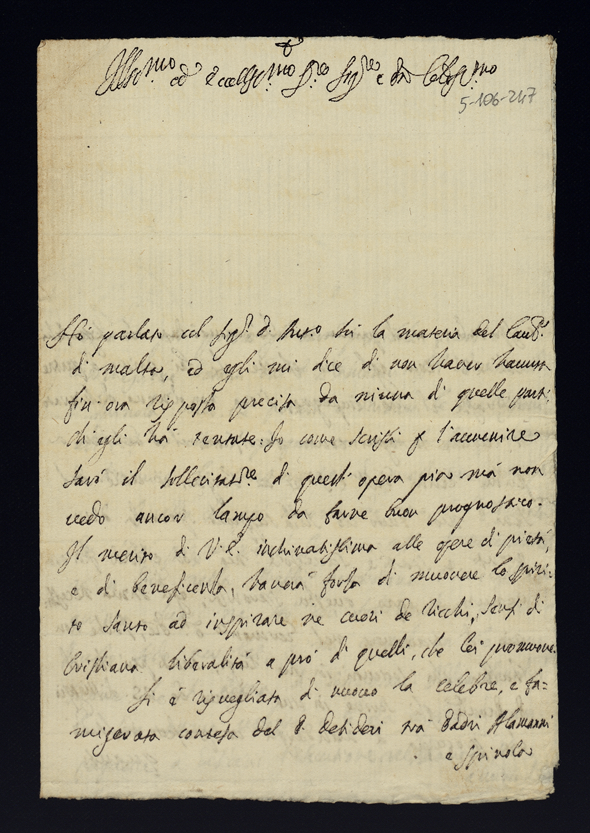 Illmo ed Eccellmo Sre Sigre e Pne Colmo
5-106-247
Hò parlato col Sigr di su la materia del
di malta, ed egli mi dice di non haver havuta
fin ora risposta precisa da niuna di quelle parti
ch'egli hà tentate. Io come scrissi p l'avvenire
sarò il sollecitatore di quest'opera pia mà non
vedo ancor lampo da farne buon prognostico.
Il merito di V.E. inchinatissima alle opere di pietà,
e di beneficenza, haverà forza di muovere lo Spiri-
to Santo ad inspirare ne cuori de Ricchi, sensi di
Cristiana liberalità a prò di quelli, che lei promuove.
Si è risvegliata di nuovo la celebre, e fa=
migerata contesa del P. Desideri trà Padri Alamanni
e Spinola